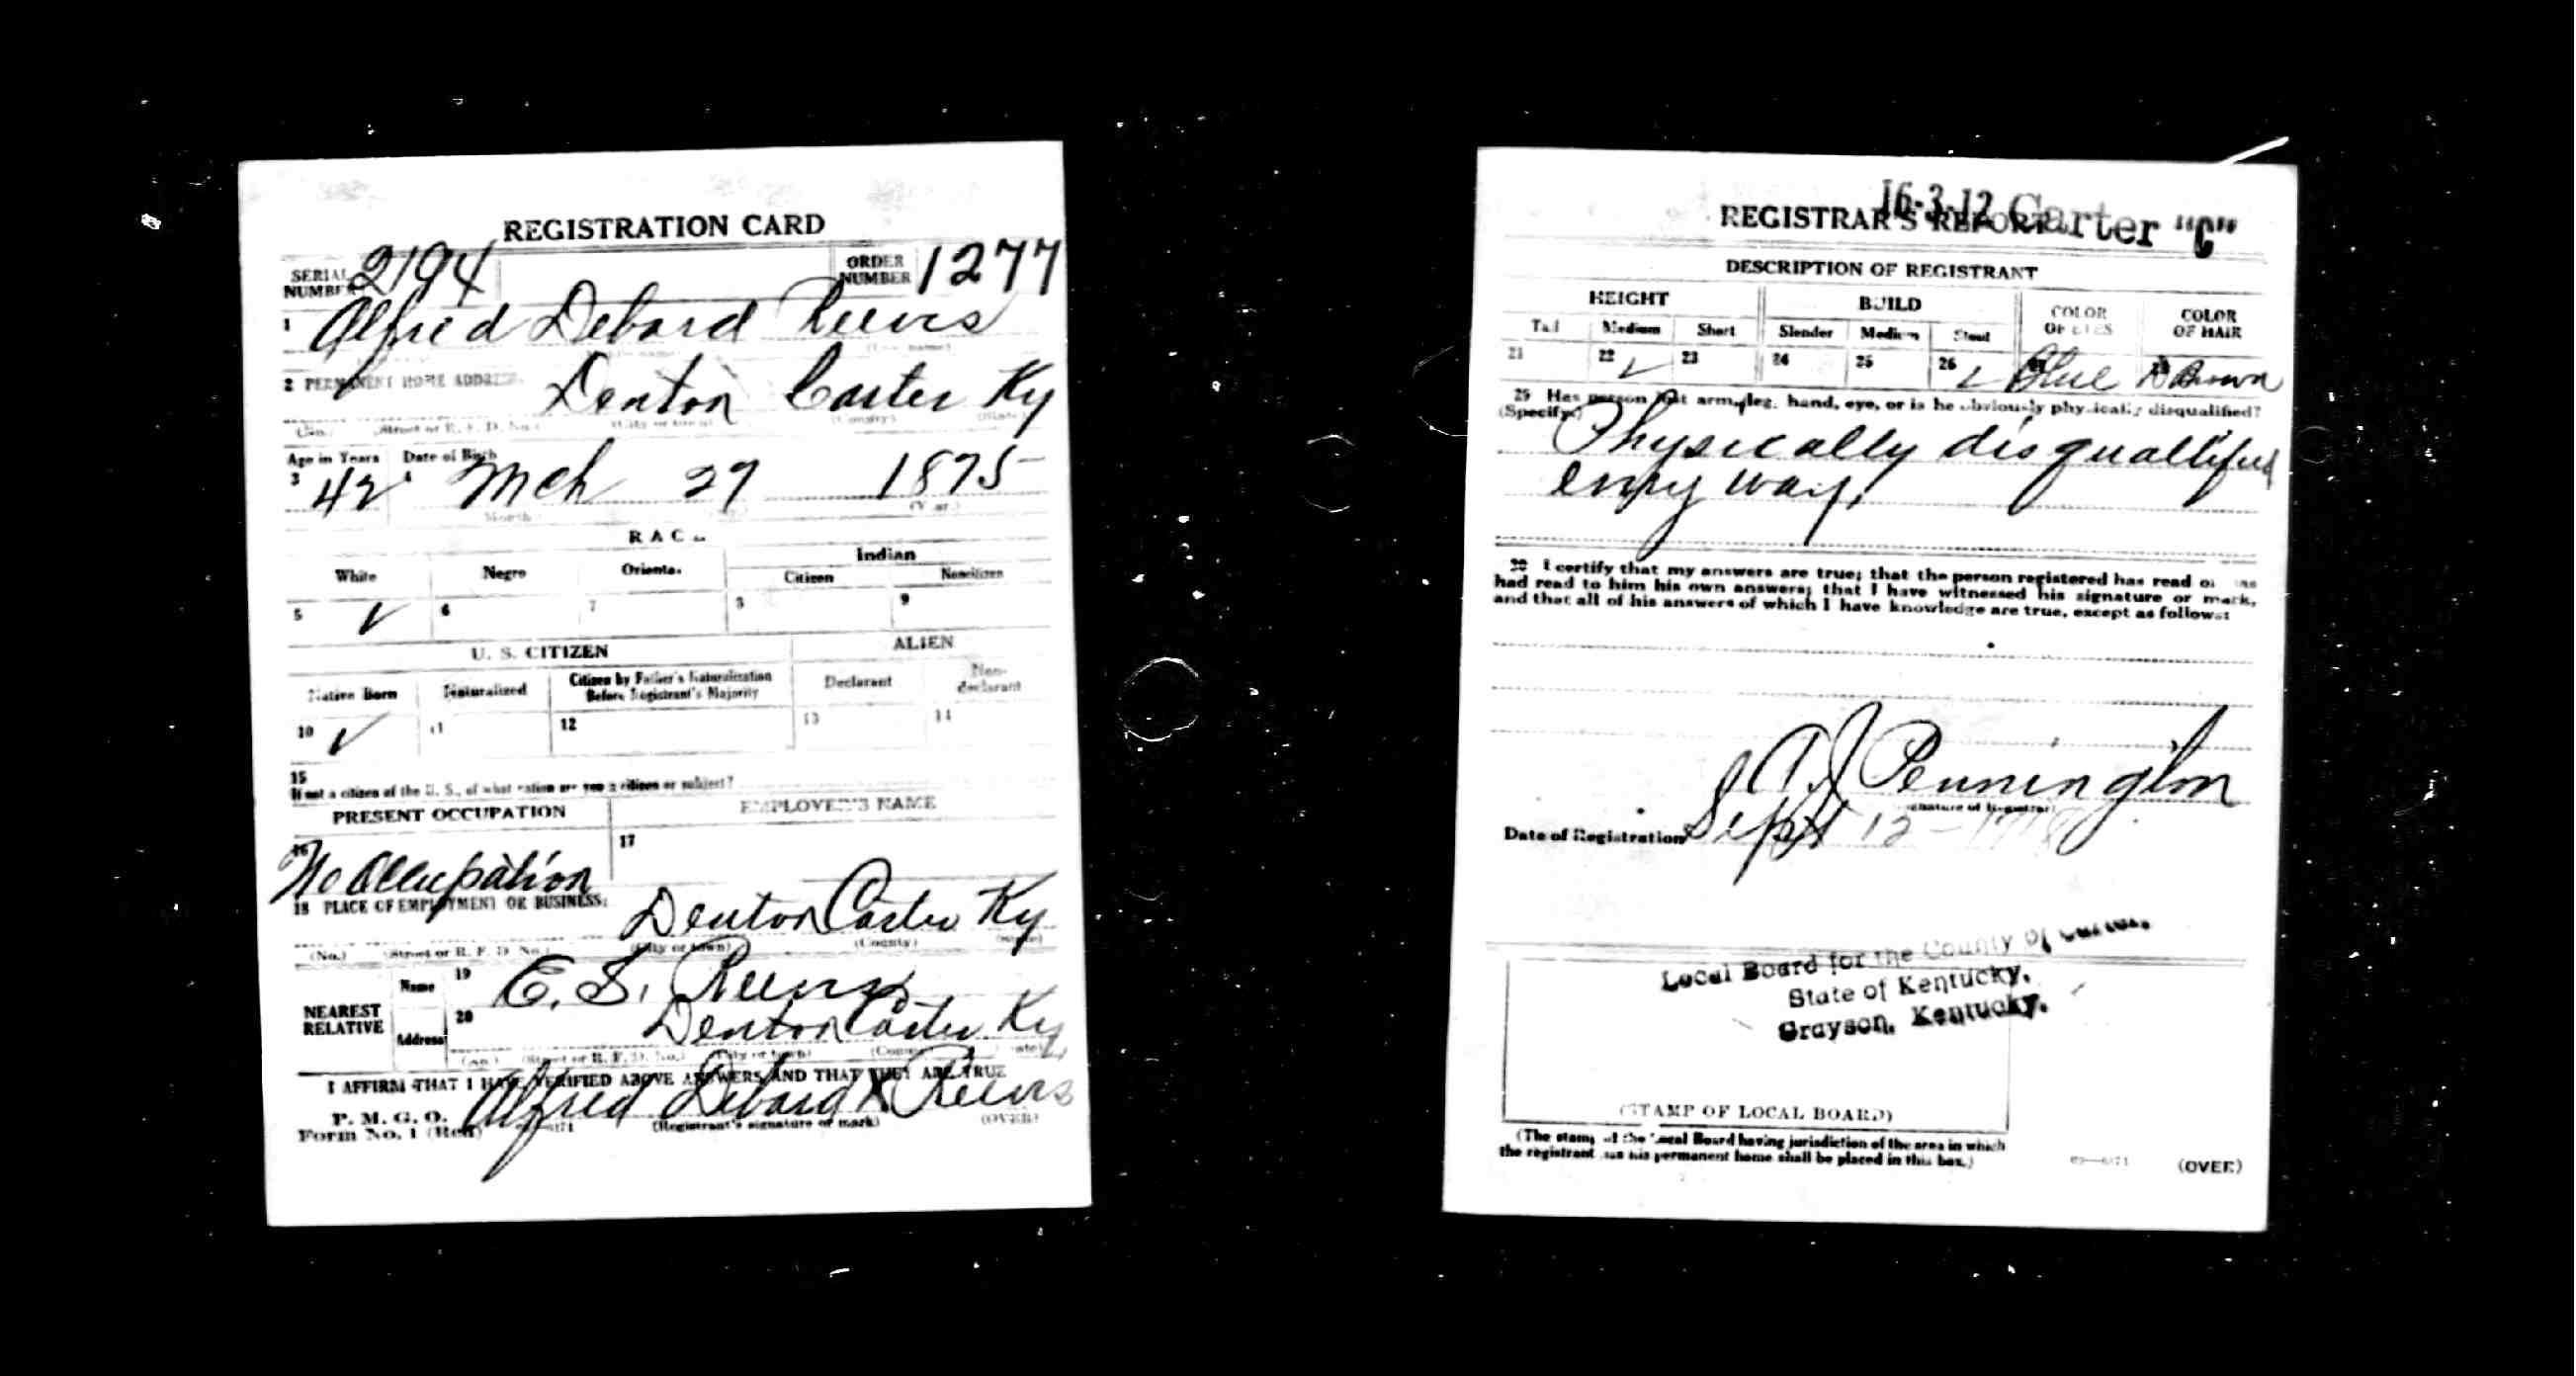 REGISTRATION CARD
SERIAL NUMBER 2194 ORDER NUMBER 1277
1 Alfred Debord Reeves
2 PERMANENT HOME ADDRESS: Denton Carter Ky
(No.) (Street or R. F. D. No.) (City or town) (County) (State)
Age in Years Date of Birth
3 42 4 Mch 29 1875
Month (Year)
RACE
White Negro Oriental Indian
Citizen Noncitizen
5 ✓ 6 7 8 9
U. S. CITIZEN ALIEN
Native Born Naturalized Citizen by Father's Naturalization Before Registrant's Majority Declarant Non-declarant
10 ✓ 11 12 13 14
15
If not a citizen of the U. S., of what nation are you a citizen or subject?
PRESENT OCCUPATION EMPLOYER'S NAME
16 No Occupation 17
18 PLACE OF EMPLOYMENT OR BUSINESS:
Denton Carter Ky
(No.) (Street or R. F. D. No.) (City or town) (County) (State)
NEAREST RELATIVE Name 19 E. S. Reeves
Address 20 Denton Carter Ky
(No.) (Street or R. F. D. No.) (City or town) (County) (State)
I AFFIRM THAT I HAVE VERIFIED ABOVE ANSWERS AND THAT THEY ARE TRUE
P. M. G. O.
Form No. 1 (Red) Alfred Debord X Reeves
(Registrant's signature or mark) (OVER)
16-3-12 Carter "C"
REGISTRAR'S REPORT
DESCRIPTION OF REGISTRANT
HEIGHT BUILD COLOR OF EYES COLOR OF HAIR
Tall Medium Short Slender Medium Stout
21 22 ✓ 23 24 25 26 ✓ Blue Brown
29 Has person lost arm, leg, hand, eye, or is he obviously physically disqualified?
(Specify.) Physically disqualified
enny way.
30 I certify that my answers are true; that the person registered has read or has
had read to him his own answers; that I have witnessed his signature or mark,
and that all of his answers of which I have knowledge are true, except as follows:
A. J. Pennington
(Signature of Registrar)
Date of Registration Sept 12 - 1918
Local Board for the County of Carter,
State of Kentucky,
Grayson, Kentucky.
(STAMP OF LOCAL BOARD)
(The stamp of the Local Board having jurisdiction of the area in which
the registrant has his permanent home shall be placed in this box.)
(OVER)